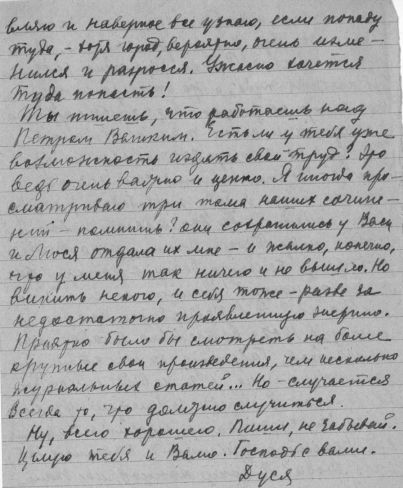 вляю и наверное все узнаю, если попаду
туда, - хотя город, вероятно, очень изме-
нился и разросся. Ужасно хочется
туда попасть!
Ты пишешь, что работаешь над
Петром Великим. Есть ли у тебя уже
возможность издать свой труд? Это
ведь очень важно и ценно. Я иногда про-
сматриваю три тома наших сочине-
ний - помнишь? они сохранились у Васи
и Люся отдала их мне - и жалко, конечно,
что у меня так ничего и не вышло. Но
винить некого, и себя тоже - разве за
недостаточно проявленную энергию.
Приятно было бы смотреть на более
крупные свои произведения, чем несколько
журнальных статей... Но - случается
всегда то, что должно случиться.
Ну, всего хорошего. Пиши, не забывай.
Целую тебя и Валю. Господь с вами.
Дуся